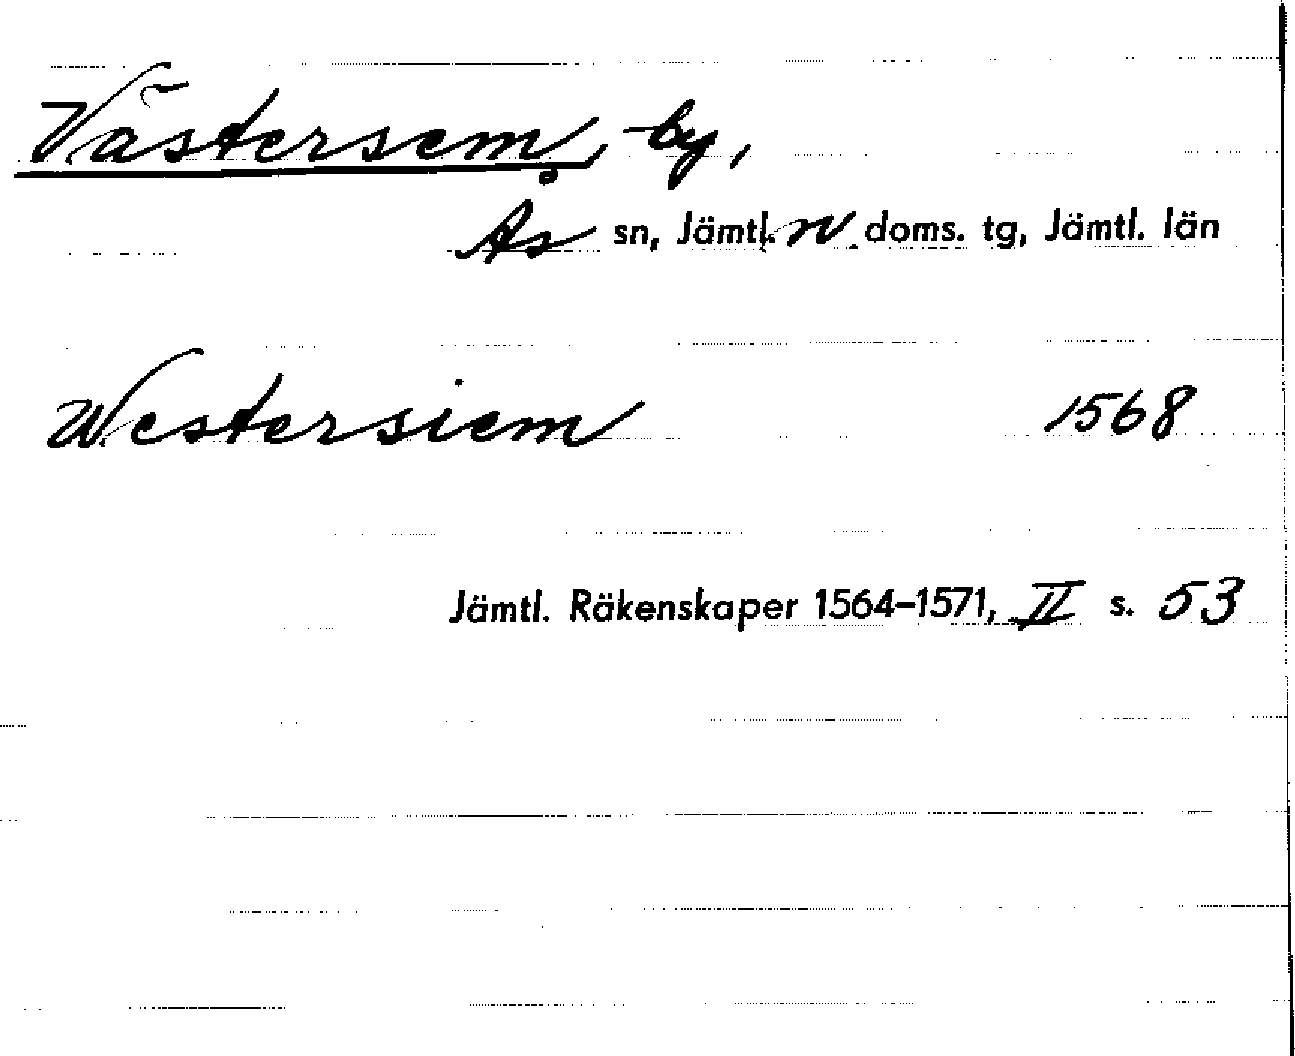 Västersem, by,
Ås sn, Jämtl. n. doms. tg, Jämtl. län
Westersiem 1568
Jämtl. Räkenskaper 1564–1571, II s. 53